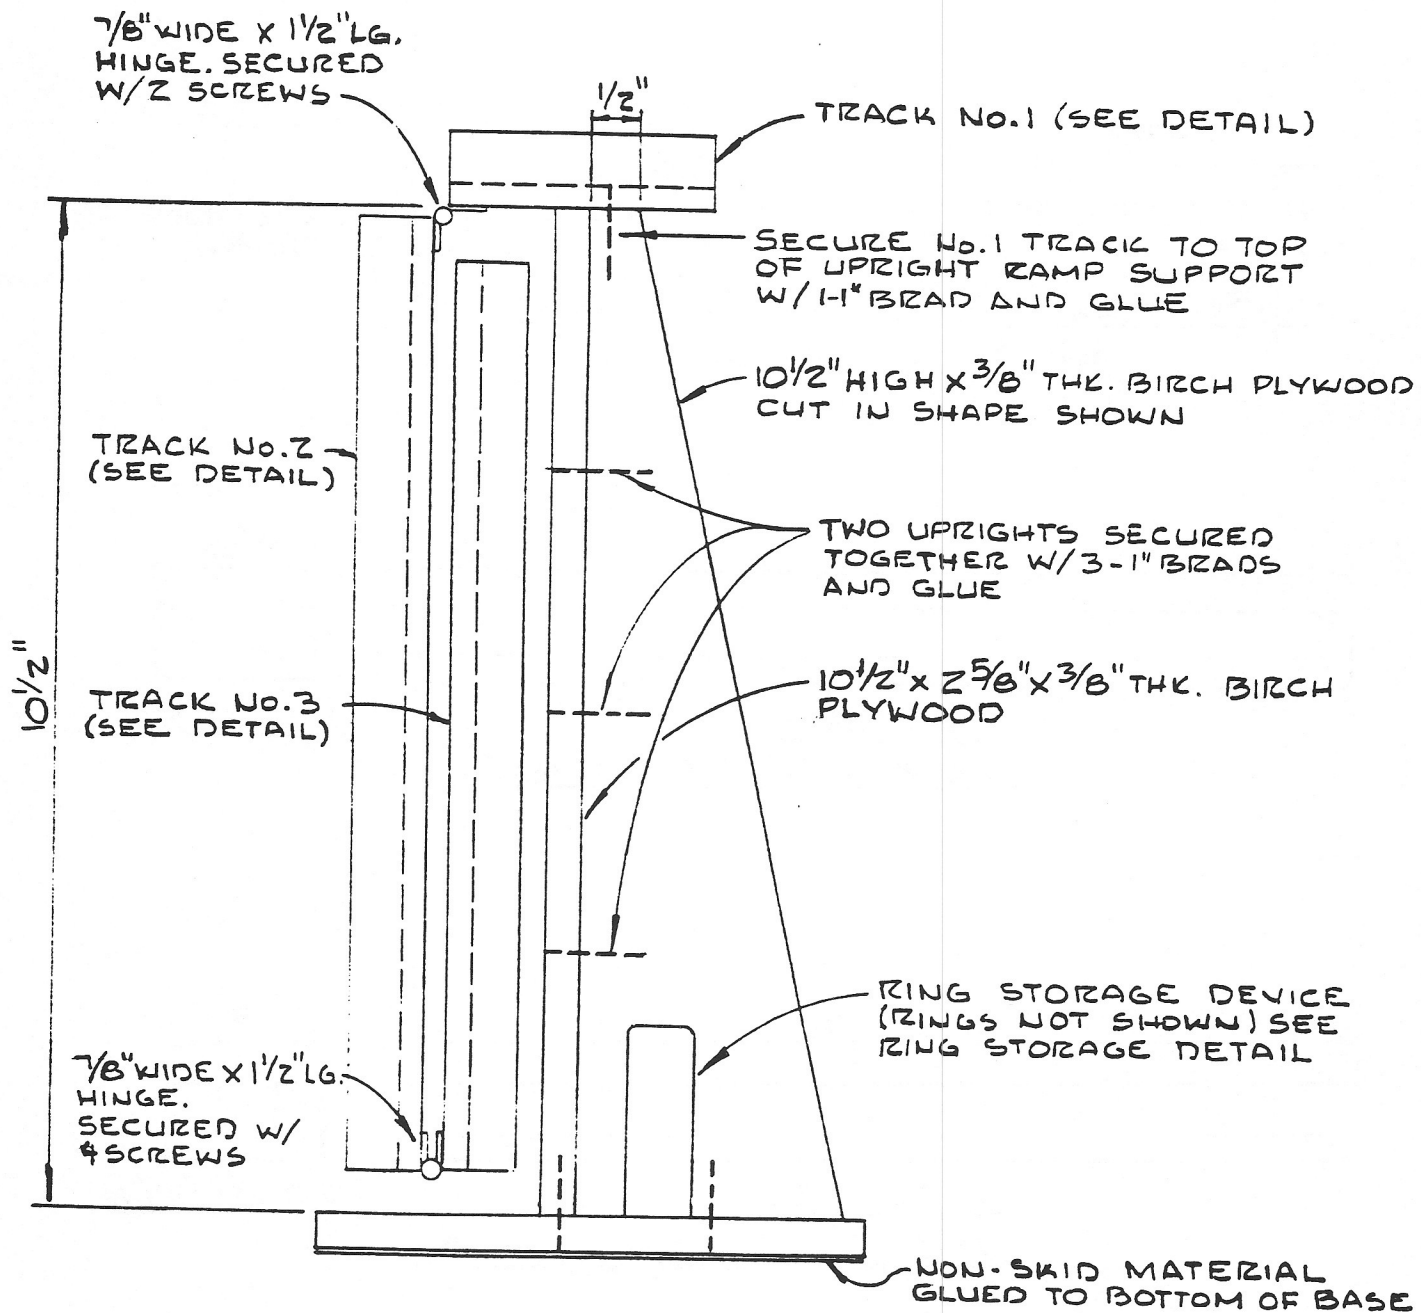 7/8" WIDE X 1 1/2" LG.
HINGE. SECURED
W/2 SCREWS
1/2"
TRACK No.1 (SEE DETAIL)
SECURE No.1 TRACK TO TOP
OF UPRIGHT RAMP SUPPORT
W/1-1" BRAD AND GLUE
10 1/2" HIGH X 3/8" THK. BIRCH PLYWOOD
CUT IN SHAPE SHOWN
TRACK No.2
(SEE DETAIL)
TWO UPRIGHTS SECURED
TOGETHER W/3-1" BRADS
AND GLUE
10 1/2"
TRACK No.3
(SEE DETAIL)
10 1/2" X 2 5/8" X 3/8" THK. BIRCH
PLYWOOD
RING STORAGE DEVICE
(RINGS NOT SHOWN) SEE
RING STORAGE DETAIL
7/8" WIDE X 1 1/2" LG.
HINGE.
SECURED W/
4 SCREWS
NON-SKID MATERIAL
GLUED TO BOTTOM OF BASE